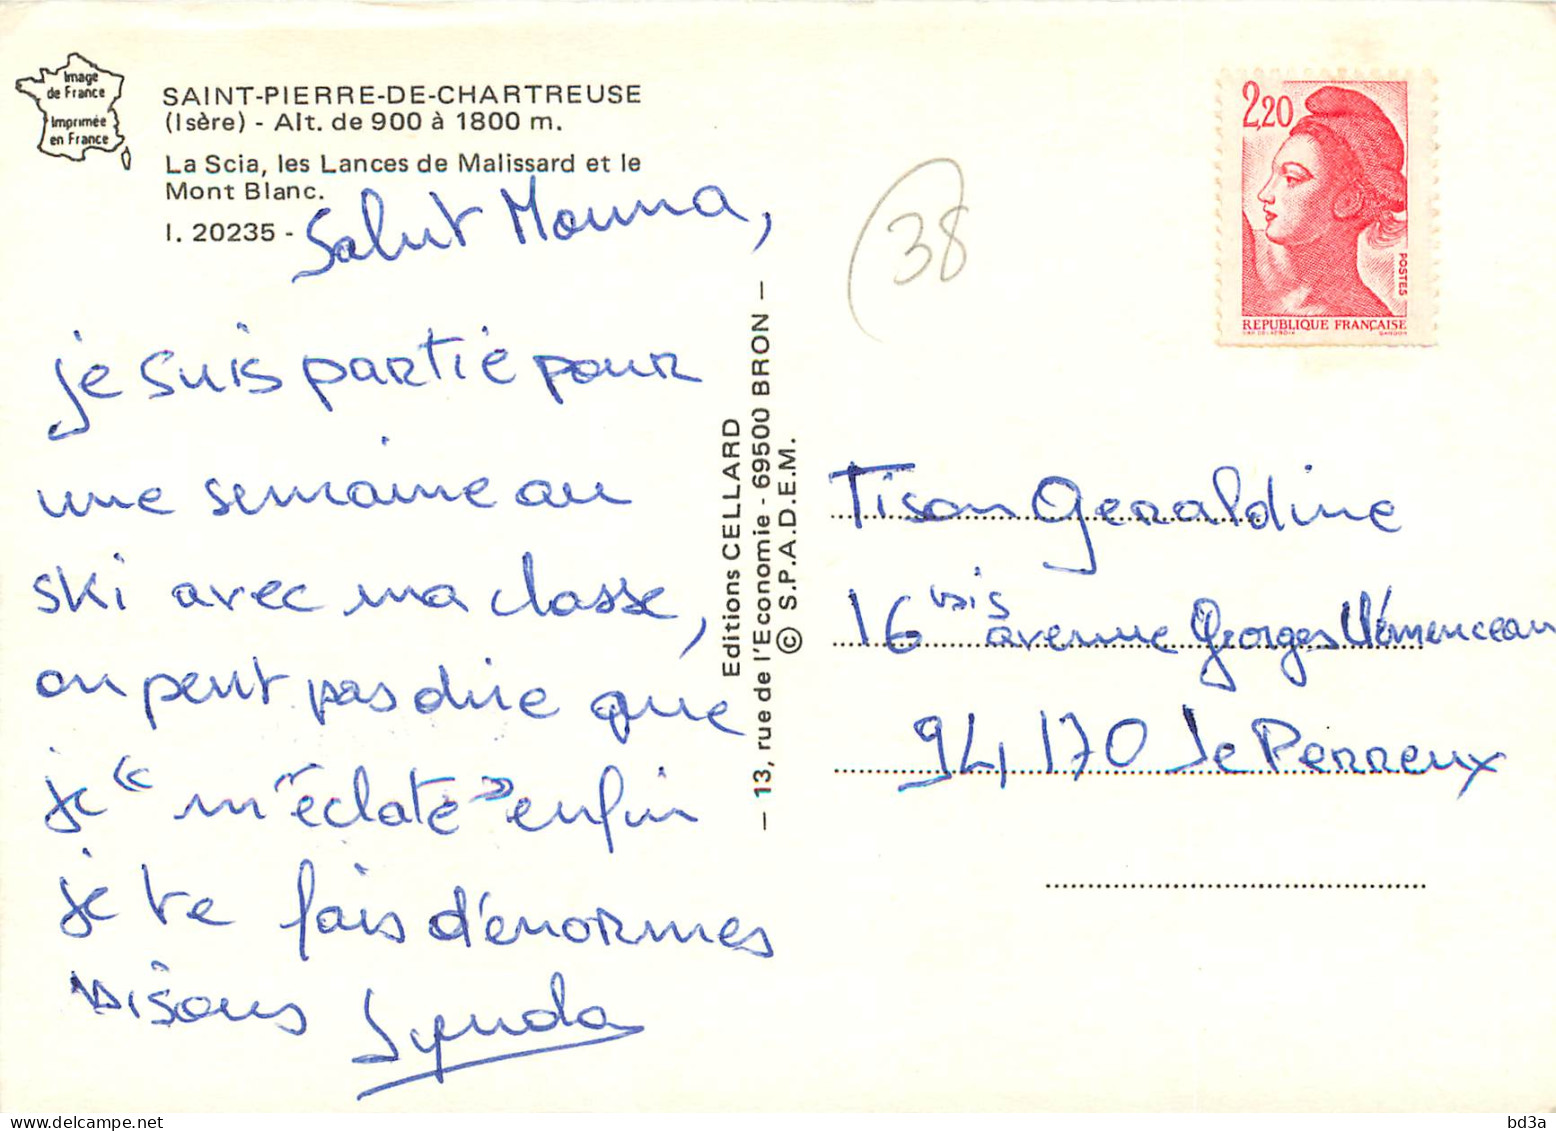 Image
de France
Imprimée
en France
SAINT-PIERRE-DE-CHARTREUSE
(Isère) - Alt. de 900 à 1800 m.
La Scia, les Lances de Malissard et le
Mont Blanc.
I. 20235 -
Salut Mouna,
je suis partie pour
une semaine au
ski avec ma classe,
on peut pas dire que
je " m'éclate " enfin
je te fais d'énormes
bisous Lynda
Editions CELLARD
— 13, rue de l'Economie - 69500 BRON —
© S.P.A.D.E.M.
38
2,20
POSTES
REPUBLIQUE FRANÇAISE
Tison Geraldine
16 bis avenue Georges Clémenceau
94170 Le Perreux
bd3a